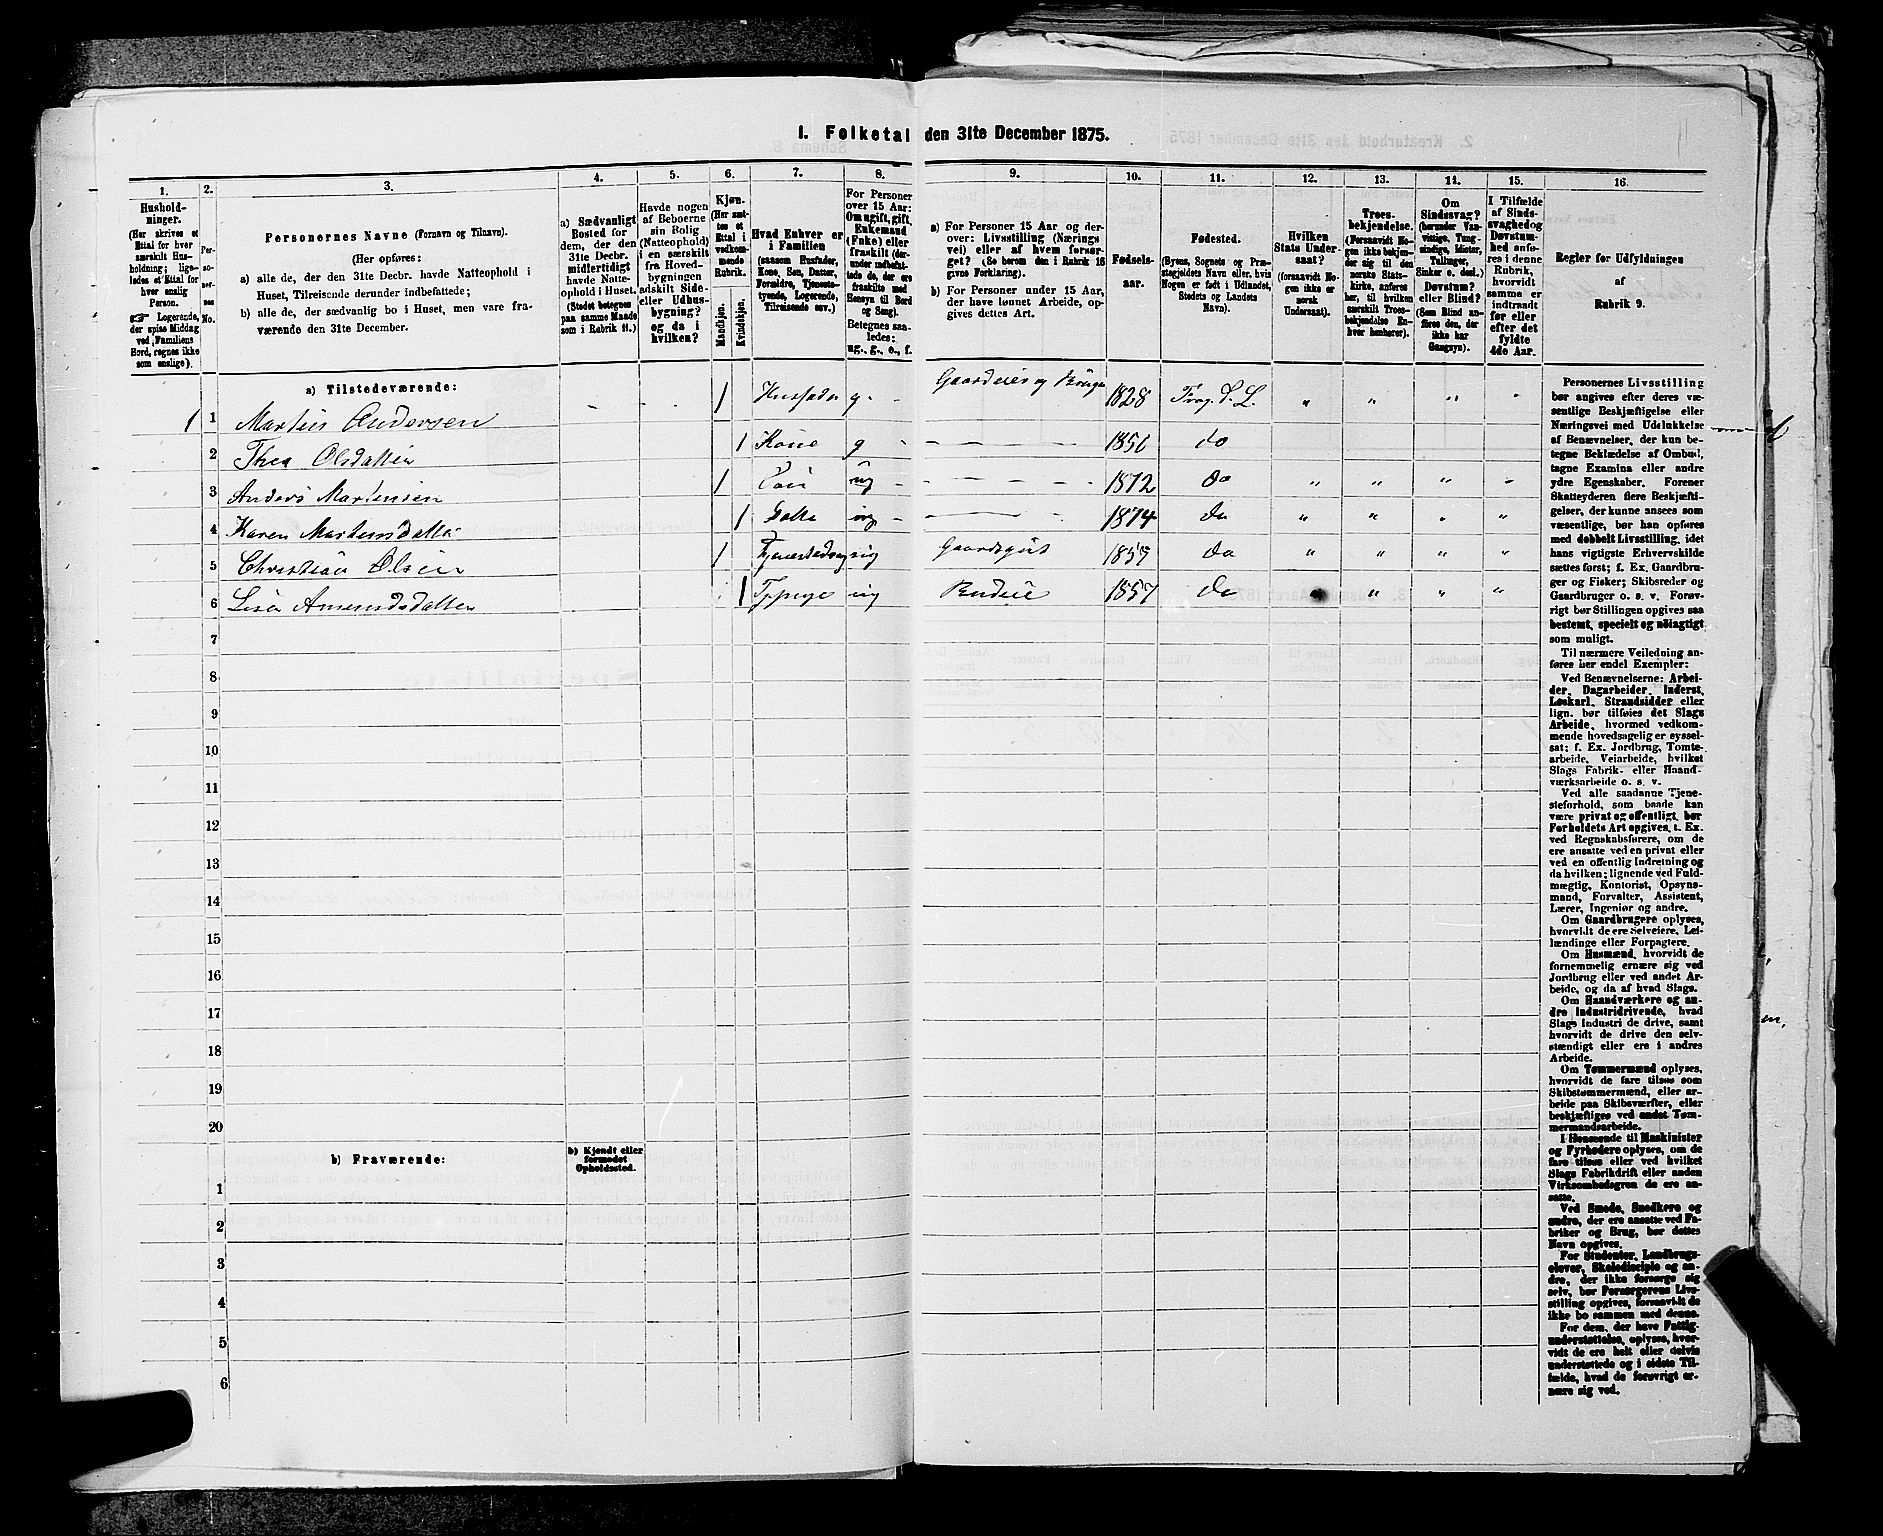 1. Folketal den 31te December 1875.
1.
2.
3.
4.
5.
6.
7.
8.
9.
10.
11.
12.
13.
14.
15.
16.
Hushold-
ninger.
(Her skrives et
Ettal for hver
særskilt Hus-
holdning; lige-
ledes et Ettal for
hver enslig
Person.
☞ Logerende,
der spise Middag
ved Familiens
Bord, regnes ikke
som enslige).
Per-
so-
ner-
nes
No.
Personernes Navne (Fornavn og Tilnavn).
(Her opføres:
a) alle de, der den 31te Decbr. havde Natteophold i
Huset, Tilreisende derunder indbefattede;
b) alle de, der sædvanlig bo i Huset, men vare fra-
værende den 31te December.
a) Sædvanligt
Bosted for
dem, der den
31te Decbr.
midlertidigt
havde Natte-
ophold i Huset.
(Stedet betegnes
paa samme Maade
som i Rubrik 11.)
Havde nogen
af Beboerne
sin Bolig
(Natteophold)
i en særskilt
fra Hoved-
bygningen
adskilt Side-
eller Udhus-
bygning?
og da i
hvilken?
Kjøn.
(Her sæt-
tes et
Ettal i
vedkom-
mende
Rubrik.
Mandkjøn.
Kvindekjøn.
Hvad Enhver er
i Familien
(saasom Husfader,
Kone, Søn, Datter,
Forældre, Tjeneste-
tyende, Logerende,
Tilreisende osv.)
For Personer
over 15 Aar:
Om ugift, gift,
Enkemand
(Enke) eller
fraskilt (der-
under indbefat-
tede de, der ere
fraskilte med
Hensyn til Bord
og Seng).
Betegnes saa-
ledes:
ug., g., e., f.
a) For Personer 15 Aar og der-
over: Livsstilling (Nærings
vei) eller af hvem forsør-
get? (Se herom den i Rubrik 16
givne Forklaring).
b) For Personer under 15 Aar,
der have lønnet Arbeide, op-
gives dettes Art.
Fødsels-
aar.
Fødested.
(Byens, Sognets og Præ-
stegjeldets Navn eller, hvis
Nogen er født i Udlandet,
Stedets og Landets
Navn).
Hvilken
Stats Under-
saat?
(forsaavidt No-
gen ikke er
norsk
Undersaat).
Troes-
bekjendelse.
(Forsaavidt No-
gen ikke bekjen-
der sig til den
norske Stats-
kirke, anføres
her, til hvilken
særskilt Troes-
bekjendelse En-
hver henhører).
Om
Sindssvag?
(herunder Van-
vittige, Tung-
sindige, Idioter,
Tullinger,
Sinker o. desl.)
Døvstum?
eller Blind?
(Som Blind an-
føres den, der
ikke har
Gangsyn).
I Tilfælde
af Sinds-
svaghed og
Døvstum-
hed anfø-
res i denne
Rubrik,
hvorvidt
samme er
indtraadt
før eller
efter det
fyldte
4de Aar.
Regler for Udfyldningen
af
Rubrik 9.
a) Tilstedeværende:
1 1 Martin Andersen - - 1 Husfader g - Gaardeier og Bruger 1828 Trog. S. L. „ „ „ „
2 Thea Olsdatter 1 Kone g - - - 1856 do
3 Anders Martensen 1 Søn ug - - - 1872 do „ „ „ „
4 Karen Martensdatter 1 Datte ug - - 1874 do „ „ „ „
5 Christian Olsen 1 ug Gaardsgut 1857 do „ „ „ „
6 Lisa Amundsdatter 1 ug Budeie 1857 do „ „ „ „
7
8
9
10
11
12
13
14
15
16
17
18
19
20
b) Fraværende:
b) Kjendt eller
formodet
Opholdssted.
1
2
3
4
5
6
Personernes Livsstilling
bør angives efter deres væ-
sentlige Beskjæftigelse eller
Næringsvei med Udelukkelse
af Benævnelser, der kun be-
tegne Beklædelse af Ombud,
tagne Examina eller andre
ydre Egenskaber. Forener
Skatteyderen flere Beskjæfti-
gelser, der kunne ansees som
væsentlige, bør han opføres
med dobbelt Livsstilling, idet
hans vigtigste Erhvervskilde
sættes først; f. Ex. Gaardbru-
ger og Fisker; Skibsreder og
Gaardbruger o. s. v. Forøv-
rigt bør Stillingen opgives saa
bestemt, specielt og nøiagtigt
som muligt.
Til nærmere Veiledning an-
føres her endel Exempler:
Ved Benævnelserne: Arbei-
der, Dagarbeider, Inderst,
Løskarl, Strandsidder eller
lign. bør tilføies det Slags
Arbeide, hvormed vedkom-
mende hovedsagelig er syssel-
sat; f. Ex. Jordbrug, Tomte-
arbeide, Veiarbeide, hvilket
Slags Fabrik- eller Haand-
værksarbeide o. s. v.
Ved alle saadanne Tjene-
steforhold, som baade kan
være privat og offentligt, bør
Forholdets Art opgives, f. Ex.
ved Regnskabsførere, om de
ere ansatte ved en privat eller
ved en offentlig Indretning og
da hvilken; lignende ved Fuld-
mægtig, Kontorist, Opsyns-
mand, Forvalter, Assistent,
Lærer, Ingeniør og andre.
Om Gaardbrugere oplyses,
hvorvidt de ere Selveiere, Lei-
lændinge eller Forpagtere.
Om Husmænd, hvorvidt de
fornemmelig ernære sig ved
Jordbrug eller ved andet Ar-
beide, og da af hvad Slags.
Om Haandværkere og an-
dre Industridrivende, hvad
Slags Industri de drive, samt
hvorvidt de drive den selv-
stændigt eller ere i andres
Arbeide.
Om Tømmermænd oplyses,
hvorvidt de fare tilsøs som
Skibstømmermænd, eller ar-
beide paa Skibsværfter, eller
beskjæftiges ved andet Tøm-
mermandsarbeide.
I Henseende til Maskinister
og Fyrbødere oplyses, om de
fare tilsøs eller ved hvilket
Slags Fabrikdrift eller anden
Virksomhedsgren de ere an-
satte.
Ved Smede, Snedkere og
andre, der ere ansatte ved Fa-
briker og Brug, bør dettes
Navn opgives.
For Studenter, Landbrugs-
elever, Skoledisciple og an-
dre, der ikke forsørge sig
selv, bør Forsørgerens Livs-
stilling opgives, forsaavidt de
ikke bo sammen med denne.
For dem, der have Fattig-
understøttelse, oplyses, hvor-
vidt de ere helt eller delvis
understøttede og i sidste Til-
fælde, hvad de forøvrigt er-
nære sig ved.